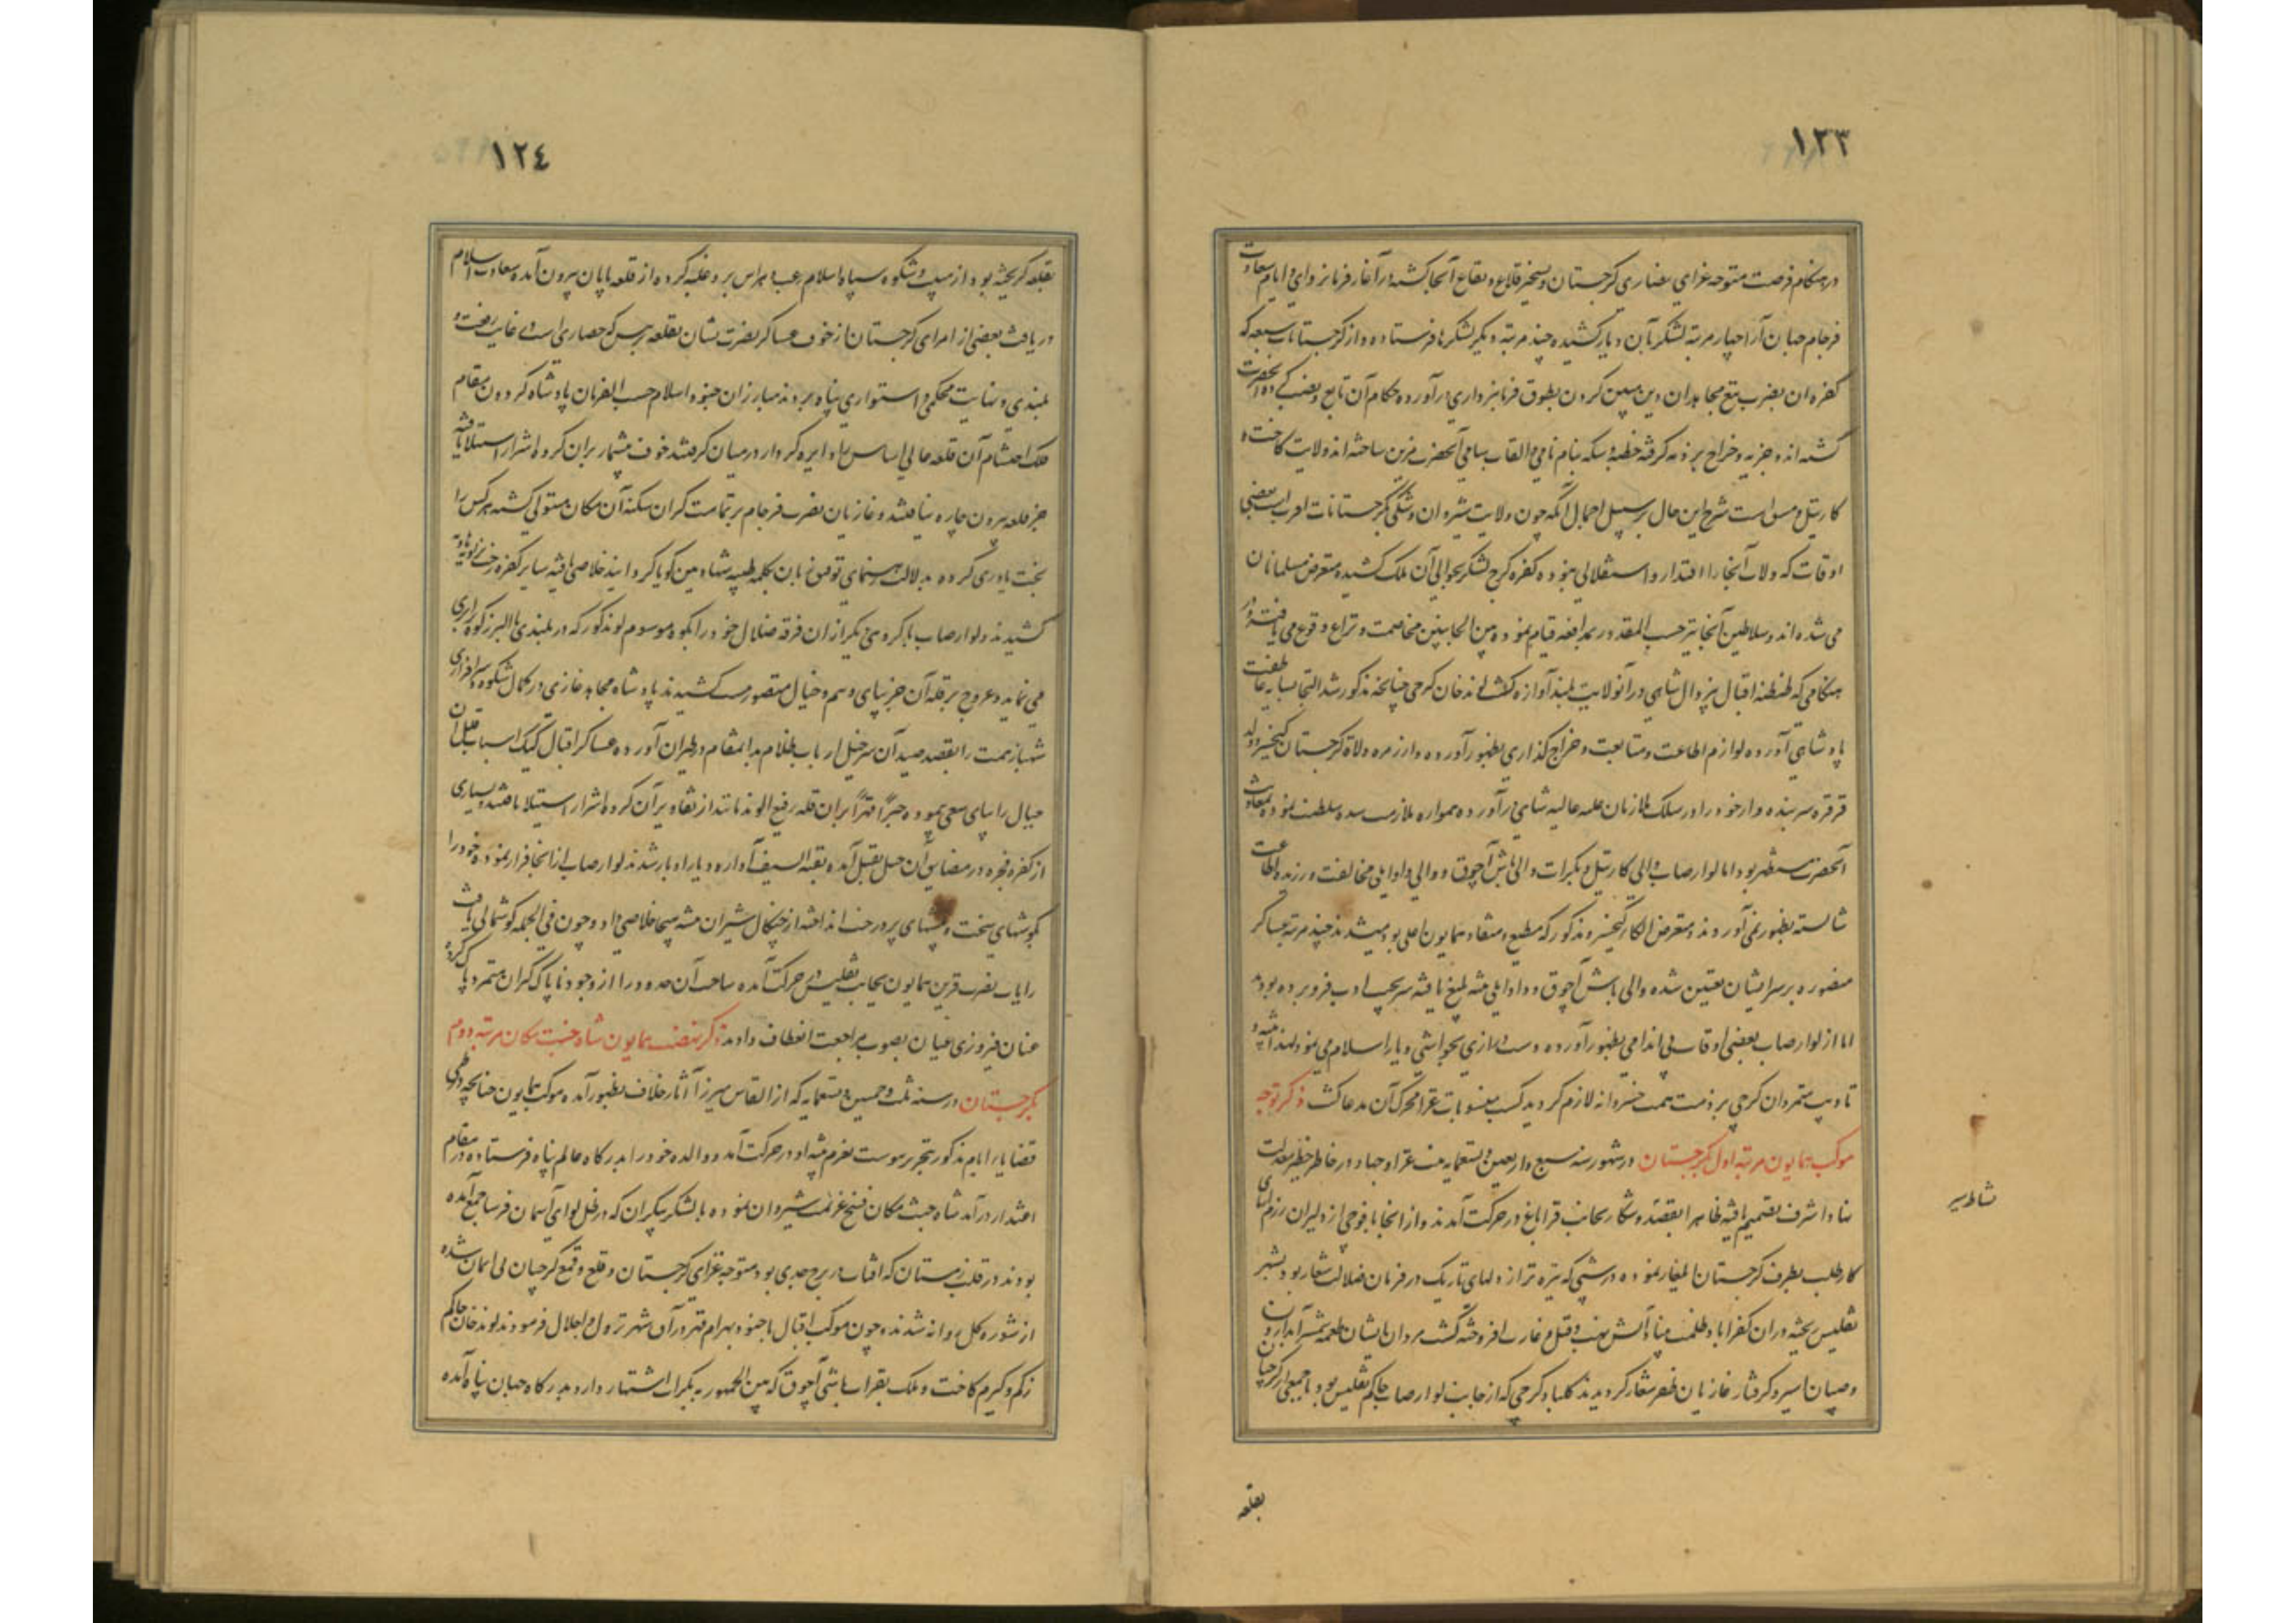 ١٢٣
در هنگام فرصت متوجه غزای نصاری گرجستان و تسخیر قلاع و بقاع آنجا گشته در آغاز فرمانروای و ایام سعادت
فرجام جهان آرا چهار مرتبه لشکر بآن دیار کشیده چند مرتبه دیگر لشکرها فرستاده و از گرجستانات سبعه که
کفره آن بضرب تیغ مجاهدان دین مبین گردن بطوق فرمانبرداری درآورده حکام آن تابع و بعضی آنحضرت
گشته اند و جزیه و خراج بر ذمه گرفته خطبه و سکه بنام نامی و القاب سامی آنحضرت مزین ساخته اند ولایت کاخت و
کارتیل و مسق است شرح این حال بر سبیل اجمال آنکه چون ولایت شیروان و شکی بگرجستانات اقرب است بعضی
اوقات که ولات آنجا را اقتدار و استقلالی نبوده کفره گرج لشکر بحوالی آن ملک کشیده متعرض مسلمانان
می شده اند و سلاطین آنجا نیز حسب المقدور بمدافعه قیام نموده بین الجانبین مخاصمت و نزاع وقوع می یافته و در
هنگامی که طنطنه اقبال بی زوال شاهی در آنولایت بلند آوازه گشت لوند خان گرجی چنانچه مذکور شد التجا بسایه عاطفت
پادشاهی آورده لوازم اطاعت و متابعت و خراج گذاری بظهور آورده و از زمره ولاة گرجستان کیخسرو ولد
قرقره سر بنده وار خود را در سلک ملازمان عتبه عالیه شاهی درآورده همواره ملازمت سده سلطنت نموده بمعاونت
آنحضرت مستظهر بود اما لوارصاب والی کارتیل و بکرات والی باش آچوق و والی دادیان مخالفت ورزیده اطاعت
شایسته بظهور نمی آوردند و متعرض الکار کیخسرو مذکور که مطیع و منقاد همایون اعلی بود میشدند چند مرتبه عساکر
منصوره بر سر ایشان تعیین شده والی باش آچوق و دادیان تنبیه بلیغ یافته سر بجیب ادب فرو برده بودند
اما از لوارصاب بعضی اوقات بی اندامی بظهور آورده دست درازی بحواشی دیار اسلام می نمود لهذا تنبیه و
تادیب متمردان گرجی بر ذمت همت خسروانه لازم گردید کسب مثوبات غزا محرک آن مدعا گشت ذکر توجه
موکب همایون مرتبه اول بگرجستان در شهور سنه سبع و اربعین و تسعمایه نیت غزا و جهاد در خاطر خطیر معدلت
بنا و اشرف تصمیم یافته ظاهرا بقصد و شکار بجانب قراباغ در حرکت آمدند و از آنجا با فوجی از دلیران رزم آزمای
کار طلب بطرف گرجستان ایلغار نموده در شبی که تیره تر از دلهای تاریک درونان ضلالت شعار بود بشهر
تفلیس ریخته در آن کفرآباد ظلمت بنیاد آتش نهب و قتل و غارت افروخته گشت مردان ایشان طعمه شمشیر آبدار و
و صبیان اسیر و گرفتار غازیان ظفر شعار گردیدند گلباد گرجی که از جانب لوارصاب حاکم تفلیس بود با جمعی از گرجیان
بقلعه
١٢٤
بقلعه گریخته بود از هیبت و شکوه سپاه اسلام رعب و هراس برو غلبه کرده از قلعه بپایان بیرون آمده سعادت اسلام
دریافت بعضی از امرای گرجستان از خوف عساکر نصرت نشان بقلعه بیرس که حصاری است در غایت رفعت و
بلندی و نهایت محکمی و استواری پناه بردند مبارزان جنود اسلام حسب الفرمان پادشاه گردون مقام
ملک احتشام آن قلعه عالی اساس را دایره کردار در میان گرفتند خوف بیشمار بر آن گروه اشرار استیلا یافته
جز قلعه بیرون چاره نیافتند و غازیان نصرت فرجام بر تمامت گبران سکنه آن مکان مستولی گشته هر کس را
بخت یاوری کرده بدلالت رهنمای توفیق زبان بکلمه طیبه شهادتین گویا گردانید خلاصی یافته سایر کفره رخت بزاویه هاویه
کشیدند و لوارصاب با گروهی دیگر از آن فرقه ضلال خود را بکوه موسوم لوند کور که در بلندی با البرز کوه برابری
می نماید و عروج بر قله آن جز بپای وهم و خیال متصور نیست کشیدند پادشاه مجاهد غازی در کمال شکوه و سرافرازی
شهباز همت را بقصد صید آن سرخیل ارباب ظلام بدانمقام در طیران آورده عساکر اقبال
جبال را بپای سعی پیموده جبراً قهراً بر آن قله رفیع الوند مانند از نقاوه بر آن گروه اشرار استیلا یافتند و بسیاری
از کفره فجره در مضایق آن جبل بقتل آمده بقیة السیف آواره دیار ادبار شدند لوارصاب از آنجا فرار نموده خود را
بکوههای سخت و بیشهای پر درخت انداخته از چنگال شیران بیشه هیجا خلاصی داد و چون فی الجمله گوشمالی یافت
رایات نصرت قرین همایون بجانب تفلیس در حرکت آمده ساحت آن حدود را از وجود ناپاک گبران متمرد پاک کرده
عنان فیروزی عیان بصوب مراجعت انعطاف دادند ذکر نهضت همایون شاه جنت مکان مرتبه دوم
بگرجستان در سنه ثلث و خمسین و تسعمایه که از القاس میرزا آثار خلاف بظهور آمده موکب همایون چنانچه در طی
قضایای ایام مذکور بتحریر پیوست بعزم تنبیه او در حرکت آمد و والده خود را بدرگاه عالم پناه فرستاده در مقام
اعتذار درآمد شاه جنت مکان فسخ عزیمت شیروان نموده با لشکر بیکران که در ظل لوای آسمان فرسا جمع آمده
بودند در قلب زمستان که آفتاب در برج جدی بود متوجه غزای گرجستان و قلع و قمع گرجیان بی ایمان شده
از شوره گل روانه شدند و چون موکب اقبال با جنود بهرام قهر در آق شهر نزول اجلال فرمودند لوند خان حاکم
زکم و گرم کاخت و ملک بقرات باشی آچوق که بین الجمهور به بکرات اشتهار دارد بدرگاه جهان پناه آمده